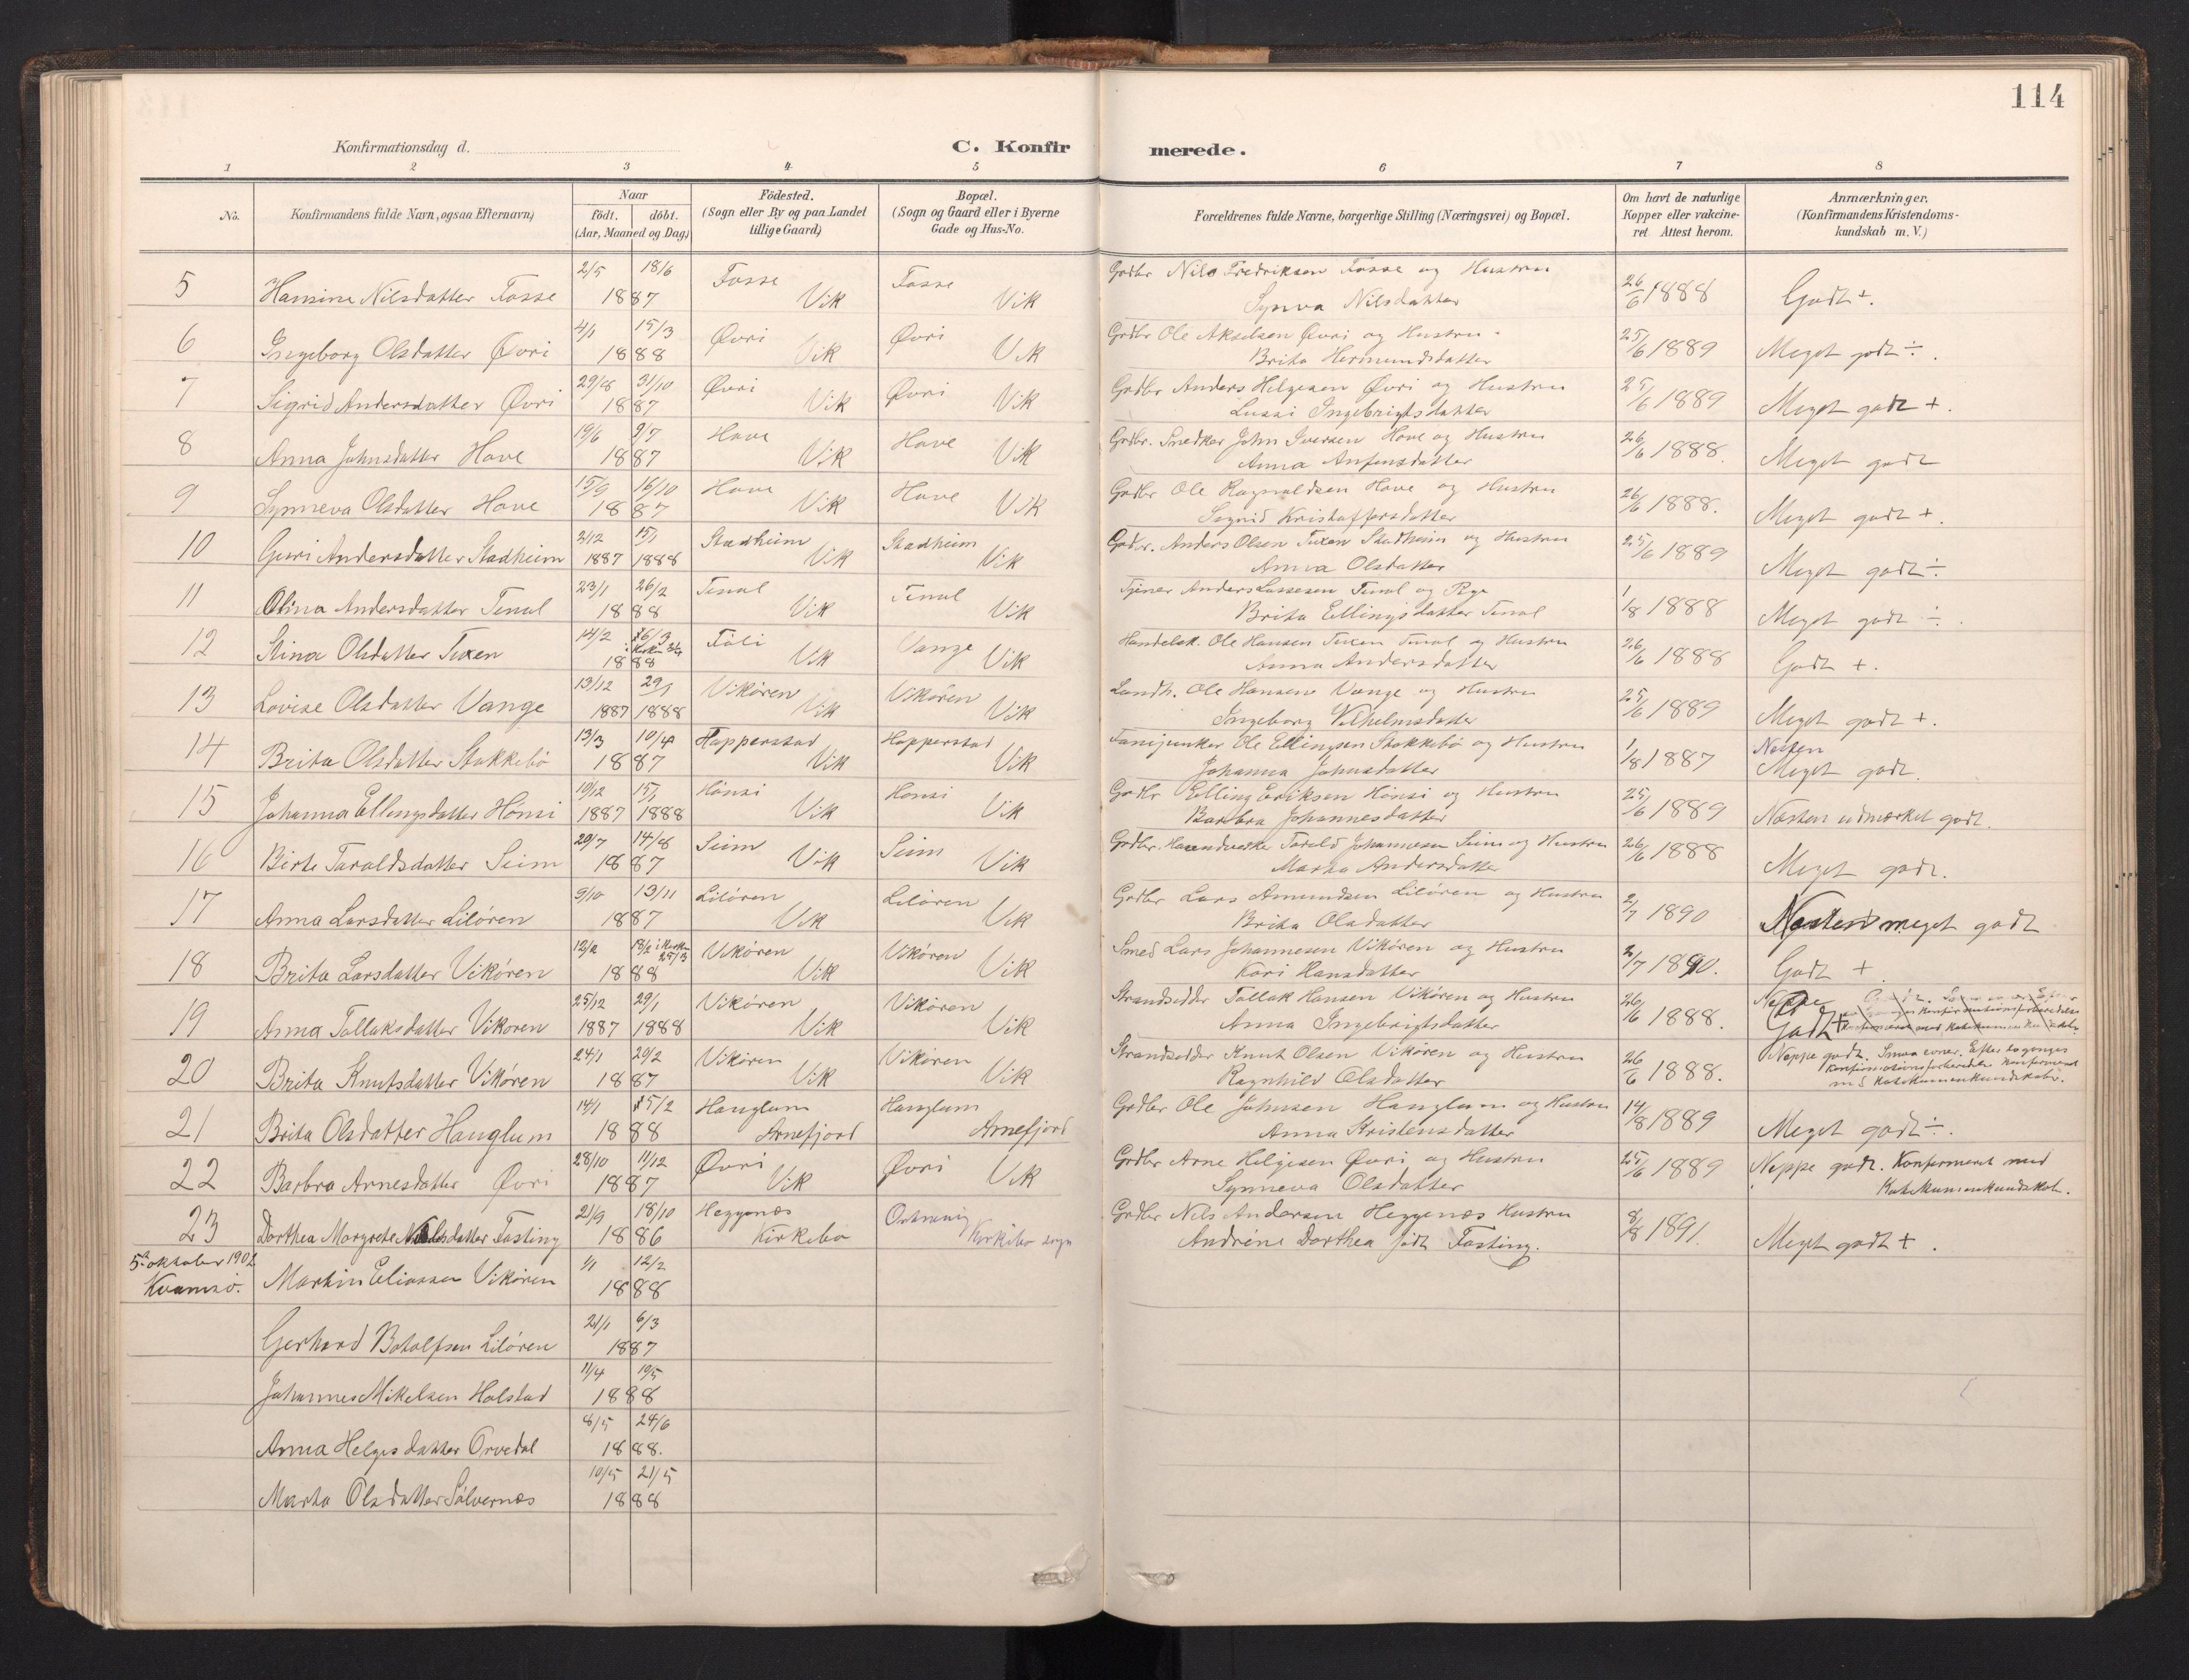 114
Konfirmationsdag d.
C. Konfirmerede.
1 2 3 4 5 6 7 8
No.
Konfirmandens fulde Navn, ogsaa Efternavn)
Naar
födt. döbt.
(Aar, Maaned og Dag)
Födested.
(Sogn eller By og paa Landet
tillige Gaard)
Bopæl.
(Sogn og Gaard eller i Byerne
Gade og Hus-No.
Forældrenes fulde Navne, borgerlige Stilling (Næringsvei) og Bopæl.
Om havt de naturlige
Kopper eller vakcine-
ret Attest herom.
Anmærkninger,
(Konfirmandens Kristendoms-
kundskab m. V.)
5 Hansine Nilsdatter Fosse 2/5 18/6 1887 Fosse Vik Fosse Vik Grdbr Nils Fredriksen Fosse og Hustru
Synva Nilsdatter 26/6 1888 Godt +.
6 Ingeborg Olsdatter Øvri 4/1 15/3 1888 Øvri Vik Øvri Vik Grdbr Ole Akselsen Øvri og Hustru
Brita Hermundsdatter 25/6 1889 Meget godt ÷.
7 Sigrid Andersdatter Øvri 29/8 31/10 1887 Øvri Vik Øvri Vik Grdbr Anders Helgesen Øvri og Hustru
Lussi Ingebrigtsdatter 25/6 1889 Meget godt +.
8 Anna Johnsdatter Hove 19/6 2/7 1887 Hove Vik Hove Vik Grdbr. Snedker John Iversen Hove og Hustru
Anna Anfinsdatter 26/6 1888. Meget godt
9 Synneva Olsdatter Hove 15/9 16/10 1887 Hove Vik Hove Vik Grdbr Ole Ragnvaldsen Hove og Hustru
Sigrid Kristoffersdatter 26/6 1888. Meget godt +.
10 Guri Andersdatter Stadheim 2/12 1887 15/1 1888 Stadheim Vik Stadheim Vik Grdbr. Anders Olsen Tuxen Stadheim og Hustru
Anna Olsdatter 25/6 1889 Meget godt ÷
11 Olina Andersdatter Tenal 23/1 26/2 1888 Tenal Vik Tenal Vik Tjener Anders Lassesen Tenal og Pige
Brita Ellingsdatter Tenal 1/8 1888 Meget godt ÷.
12 Stina Olsdatter Tuxen 14/2 1888 Föli Vik Vange Vik Handelsk. Ole Hansen Tuxen Tenal og Hustru
Anna Andersdatter 26/6 1888 Godt +.
13 Lovise Olsdatter Vange 13/12 1887 29/1 1888 Vikören Vik Vikören Vik Landh. Ole Hansen Vange og Hustru
Ingeborg Vilhelmsdatter 25/6 1889 Meget godt +.
14 Brita Olsdatter Stokkebö 13/3 10/4 1887 Hopperstad Vik Hopperstad Vik Fanejunker Ole Ellingsen Stokkebö og Hustru
Johanna Johnsdatter 1/8 1887 Næsten
Meget godt.
15 Johanna Ellingsdatter Hönsi 10/12 1887 15/1 1888 Hönsi Vik Hönsi Vik Grdbr Elling Eriksen Hönsi og Hustru
Barbra Johannesdatter 25/6 1889 Næsten udmærket godt.
16 Birte Taraldsdatter Seim 29/7 14/8 1887 Seim Vik Seim Vik Grdbr. Haandverker Tarald Johannesen Seim og Hustru
Marta Andersdatter 26/6 1888 Meget godt.
17 Anna Larsdatter Lilören 9/10 13/11 1887 Lilören Vik Lilören Vik Grdbr Lars Amundsen Lilören og Hustru
Brita Olsdatter 2/7 1890 Næsten meget godt
18 Brita Larsdatter Vikören 12/2 18/2 i Kirken 25/3 1888 Vikören Vik Vikören Vik Smed Lars Johannesen Vikören og Hustru
Kari Hansdatter 2/7 1890. Godt +
19 Anna Tollaksdatter Vikören 25/12 1887 29/1 1888 Vikören Vik Vikören Vik Strandsidder Tollak Hansen Vikören og Hustru
Anna Ingebrigtsdatter 26/6 1888. Godt +
20 Brita Knutsdatter Vikören 24/1 20/2 1887 Vikören Vik Vikören Vik Strandsidder Knut Olsen Vikören og Hustru
Ragnhild Olsdatter 26/6 1888. Neppe godt. Smaa evner. Efter to ganges
konfirmationsforberedelse konfirmeret
med Katekumenkundskab.
21 Brita Olsdatter Hanglum 14/1 15/2 1888 Hanglum Arnefjord Hanglum Arnefjord Grdbr Ole Johnsen Hanglum og Hustru
Anna Kristensdatter 14/8 1889 Meget godt ÷.
22 Barbra Arnesdatter Øvri 28/10 11/12 1887 Øvri Vik Øvri Vik Grdbr Arne Helgesen Øvri og Hustru
Synneva Olsdatter 25/6 1889 Neppe godt. Konfirmeret med
Katekumenkundskab.
23 Dorthea Margrete Nilsdatter Fasting 21/9 18/10 1886 Heggenæs Kirkebo Kirkebo sogn Grdbr Nils Andersen Heggenæs Hustru
Andrine Dorthea født Fasting. 8/8 1891. Meget godt +.
5te oktober 1902
Kvamsö. Martin Eliassen Vikören 1/1 12/2 1888
Gerhard Botolfsen Lilören 21/1 6/3 1887
Johannes Mikelsen Holstad 11/4 10/5 1888
Anna Helgesdatter Orvedal 8/5 24/6 1888.
Marta Olsdatter Sölvernes 10/5 21/5 1888